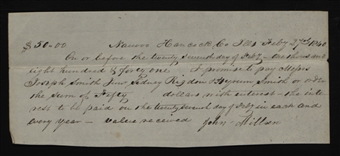 $50.00 Nauvoo Hancock Co. Ills Feby 27th 1840
On or before the twenty seventh day of Feby one thousand
eight hundred & forty one I promise to pay Messrs
Joseph Smith Junr Sidney Rigdon & Hyrum Smith or order
the sum of Fifty dollars with interest the inte
rest to be paid on the twenty seventh day of Feby in each and
every year — value received John Millser